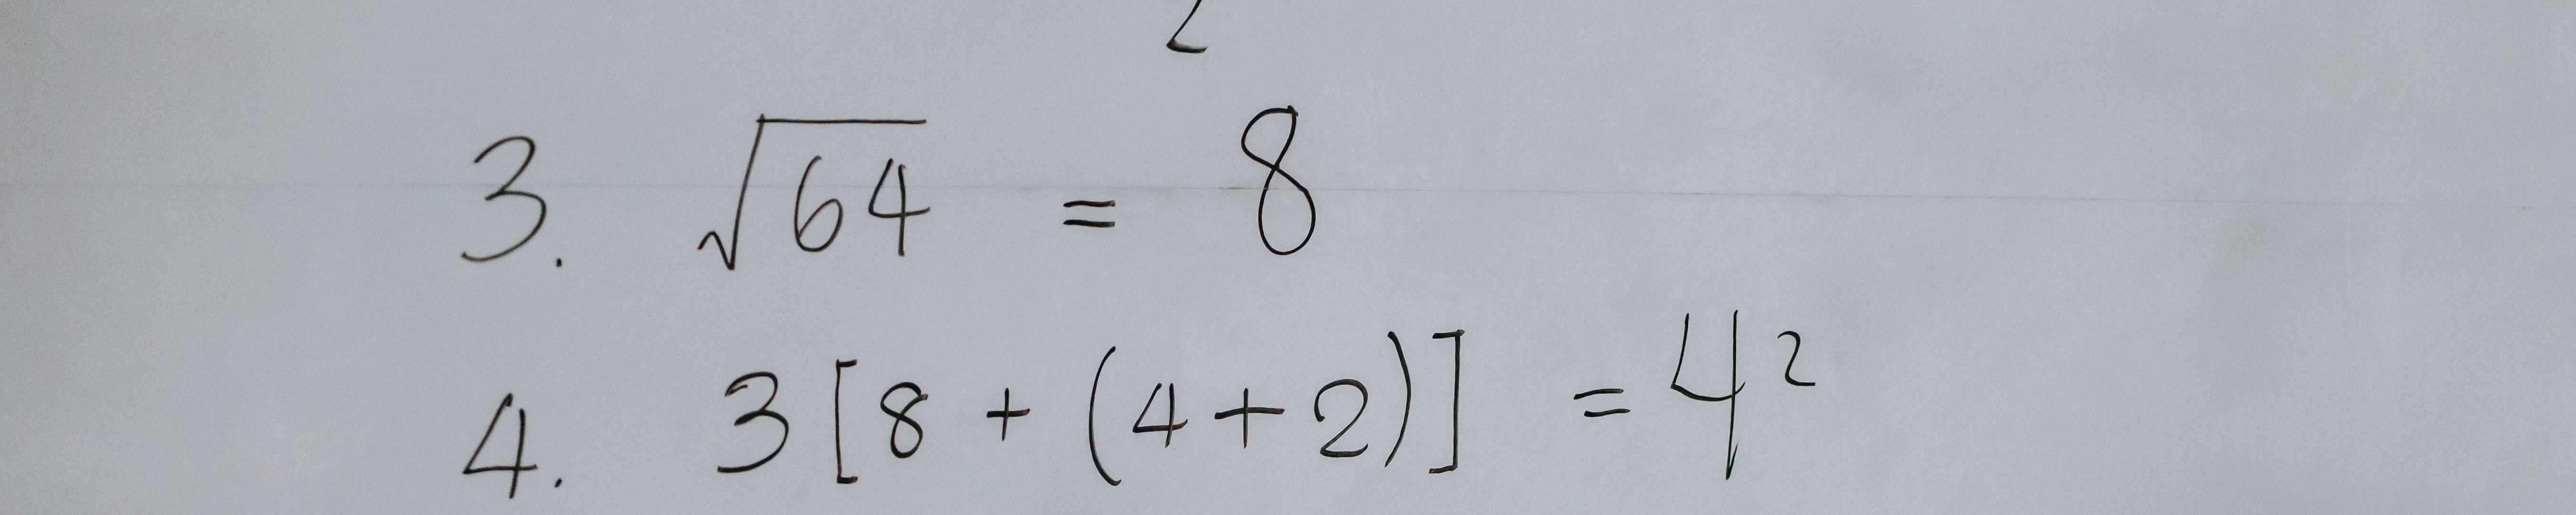 2
3. √64 = 8
4. 3[8 + (4+2)] = 4²